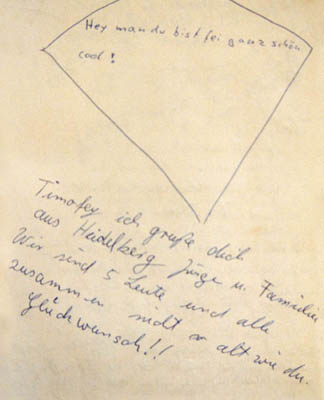 Hey man du bist fei ganz schön
cool!
Timofey ich grüße dich
aus Heidelberg Jürge u. Familie
Wir sind 5 Leute und alle
zusammen nicht so alt wie du.
Glückwunsch!!